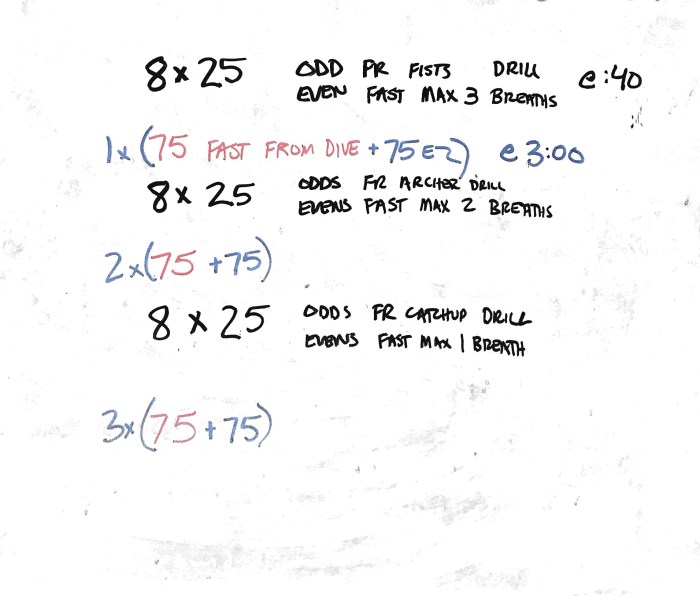 8 x 25 ODD FR FISTS DRILL @ :40
EVEN FAST MAX 3 BREATHS
1x (75 FAST FROM DIVE + 75 EZ) @ 3:00
8 x 25 ODDS FR ARCHER DRILL
EVENS FAST MAX 2 BREATHS
2x(75 + 75)
8 x 25 ODDS FR CATCHUP DRILL
EVENS FAST MAX 1 BREATH
3x(75 + 75)